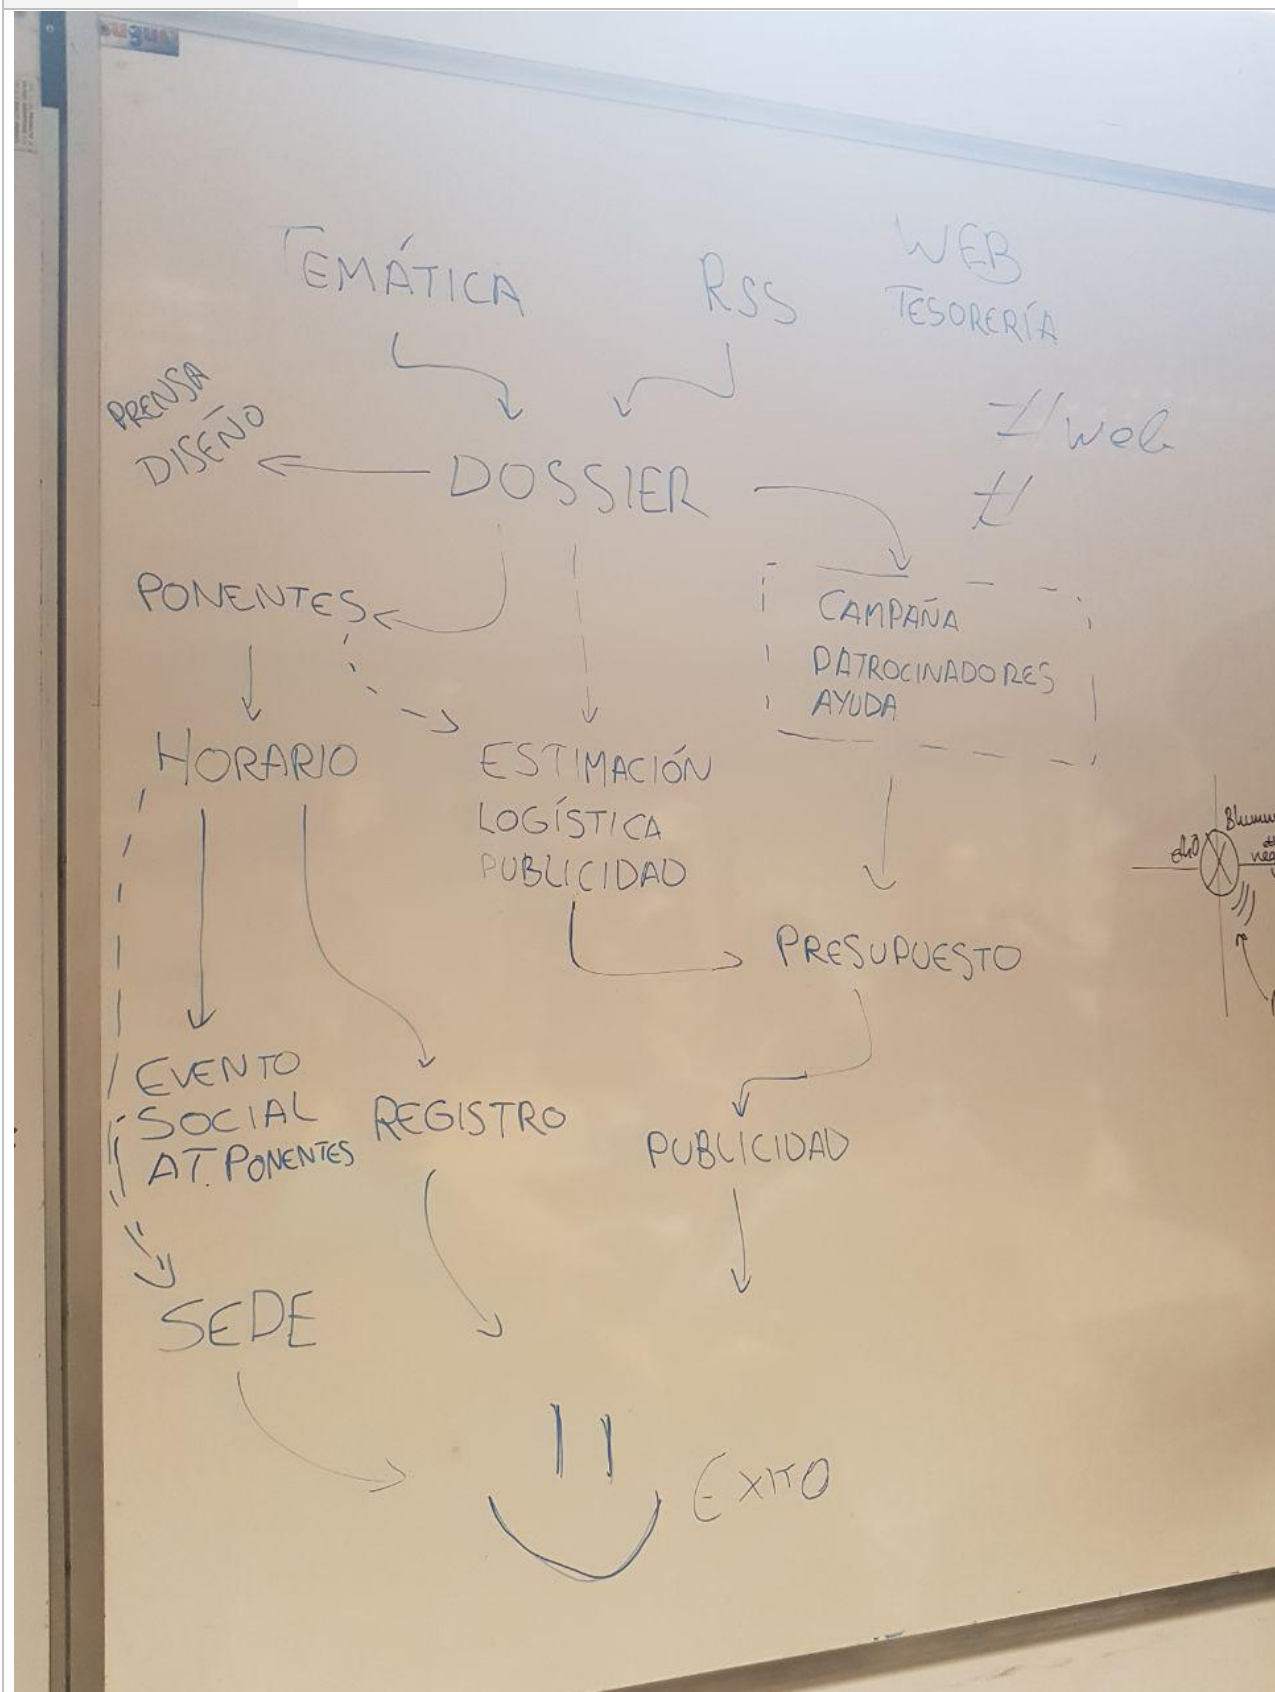 TEMÁTICA
RSS
WEB
TESORERÍA
PRENSA
DISEÑO
DOSSIER
#web
#
PONENTES
CAMPAÑA
PATROCINADORES
AYUDA
HORARIO
ESTIMACIÓN
LOGÍSTICA
PUBLICIDAD
PRESUPUESTO
EVENTO
SOCIAL
AT. PONENTES
REGISTRO
PUBLICIDAD
SEDE
EXITO